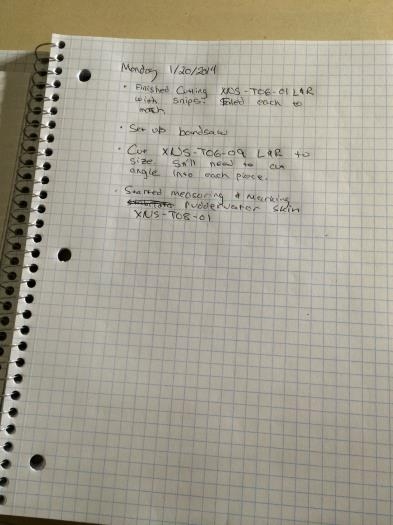 Monday 1/20/2014
• Finished Cutting XNS-T06-01 L&R
with snips. Filed each to
match
• Set up bandsaw
• Cut XNS-T06-09 L&R to
size. Still need to cut
angle into each piece.
• Started measuring & marking
ruddervator skin
XNS-T08-01